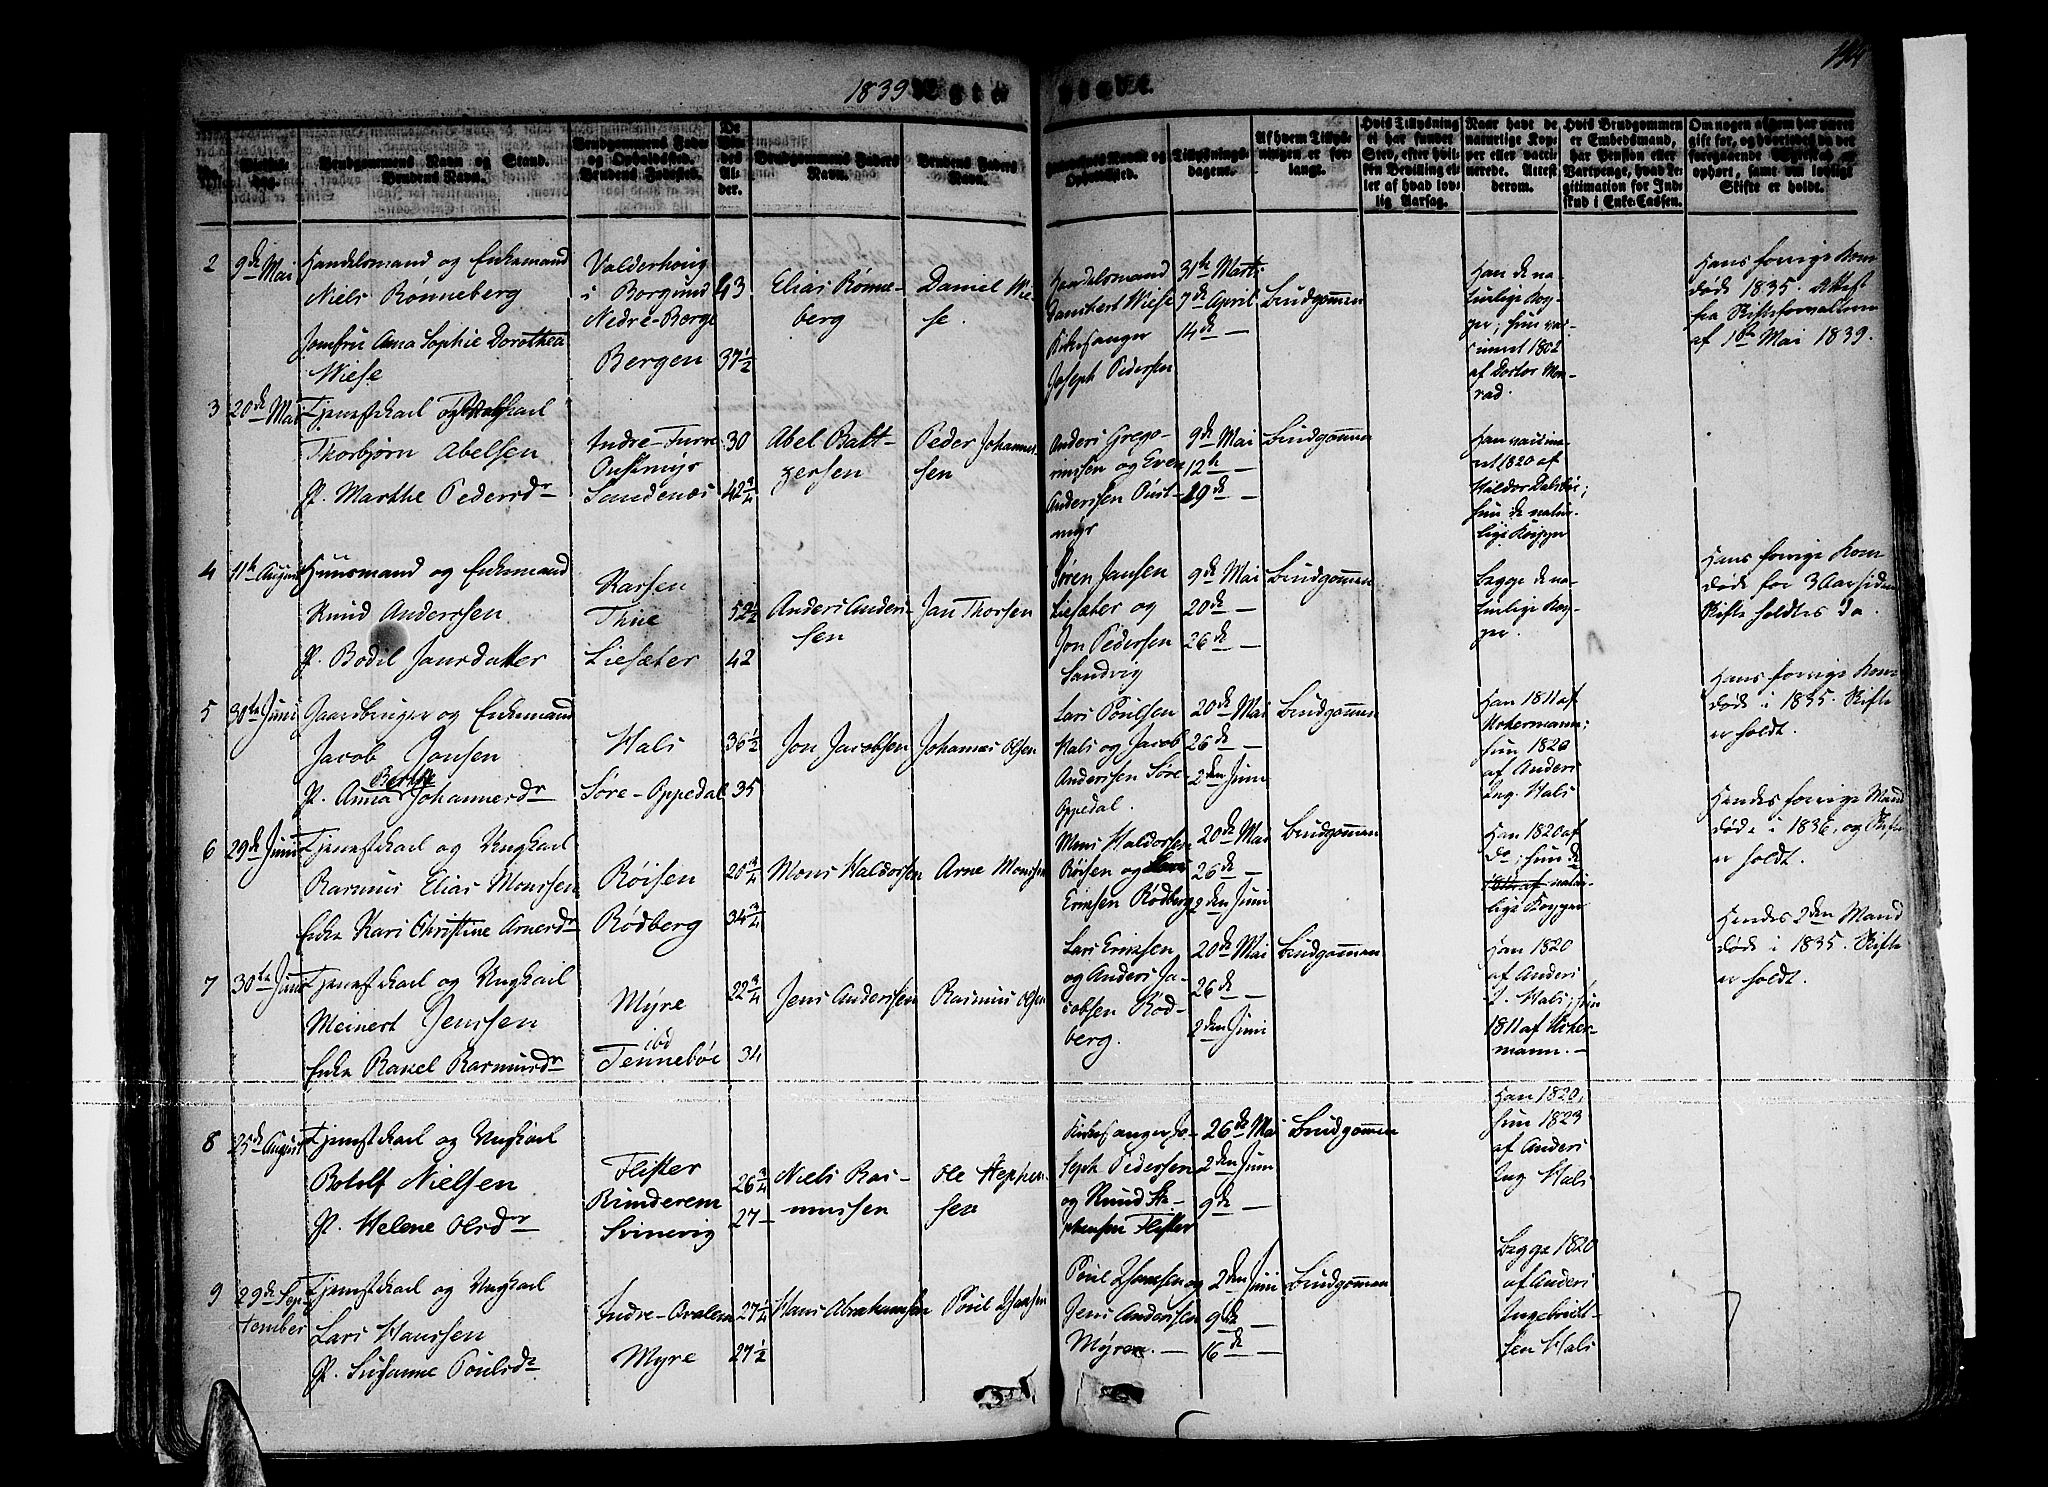 194
1839
Viede.
No.
Vielses-
dag.
Brudgommens Navn og Stand.
Brudens Navn.
Brudgommens Føde-
og Opholdssted.
Brudens Fødested.
De
Vie-
des
Al-
der.
Brudgommens Faders
Navn.
Brudens Faders
Navn.
Forloveres Navne og
Opholdssted.
Tillysnings-
dagene.
Af hvem Tillys-
ningen er for-
langt.
Hvis Tillysning
ei har funder
Sted, efter hvil-
ken Bevilling el-
ler af hvad lov-
lig Aarsag.
Naar havt de
naturlige Kop-
per eller vacci-
nerede. Attest
derom.
Hvis Brudgommen
er Embedsmand,
har Pension eller
Vartpenge, hvad Le-
gitimation for Ind-
skud i Enke-Cassen.
Om nogen af dem har været
gift før, og hvorledes da det
foregaaende Ægteskab er
ophørt, samt om lovligt
Skifte er holdt.
2
9de Mai
Handelsmand og Enkemand
Niels Rønneberg
Jomfru Anna Sophie Dorothea
Wiese
Valderhoug
i Borgund
Nedre-Borge
Bergen
43
37½
Elias Rønne-
berg
Daniel Wie-
se.
Handelsmand
Wiese
Kirkesanger
Joseph Pedersen
31te Marts
7de April
14de —
Brudgommen
Han de na-
turlige Kop-
per; hun vac-
cineret 1802
af Doctor Mon-
rad.
Hans forrige Kone
døde 1835. Attest
fra Skifteforvalteren
af 1ste Mai 1839.
3
20de Mai
Tjenestekarl og Ungkarl
Thorbjørn Abelsen
P. Marthe Pedersdr
Indre-Furre
Oustmyr
Sandenæs
30
42¾
Abel Balt-
zersen
Peder Johannes-
sen
Anders Grego-
riussen og Even
Anderssen Oust-
myr
9de Mai
12te —
19de —
Brudgommen
Han vaccine-
ret 1820 af
Haldor Dalsbø;
hun de natur-
lige Kopper
4
11te August
Huusmand og Enkemand
Knud Anderssen
P. Bodil Jansdatter
Karsen
Thue
Liesæter
52½
42
Anders Anders-
sen
Jan Thorsen
Søren Jansen
Liesæter og
Jon Pedersen
Sandvig
9de Mai
20de —
26de —
Brudgommen
Begge de na-
turlige Kop-
per.
Hans forrige Kone
døde for 3 Aar siden
Skifte holdtes da.
5
30te Juni
Gaardbruger og Enkemand
Jacob Jonsen
Berthe
P. Anna Johannesdr
Hals
Søre-Oppedal
36½
35
Jon Jacobsen
Johannes Olsen
Lars Poulsen
Hals og Jacob
Anderssen Søre-
Oppedal.
20de Mai
26de —
2den Juni
Brudgommen
Han 1811 af
Uckermann;
hun 1820
af Anders
Ing. Hals
Hans forrige Kone
døde i 1835. Skifte
er holdt.
6
29de Juni
Tjenestekarl og Ungkarl
Rasmus Elias Monssen
Enke Kari Christine Arnesdr
Røisen
Rødberg
20¾
34¾
Mons Haldorsen
Arne Monssen
Mons Haldorsen
Røisen og Lars
Ericksen Rødberg
20de Mai
26de —
2den Juni
Brudgommen
Han 1820 af
do; hun de
1811 af natur-
lige Kopper
Hendes forrige Mand
døde i 1836, og Skifte
er holdt.
7
30te Juni
Tjenestekarl og Ungkarl
Meinert Jenssen
Enke Rakel Rasmusdr
Myre
ibd
Tennebøe
22¾
34
Jens Anderssen
Rasmus Olsen
Lars Ericksen
og Anders Ja-
cobsen Rød-
berg.
20de Mai
26de —
2den Juni
Brudgommen
Han 1820
af Anders
I. Hals, hun
1811 af Ucker-
mann. —
Hendes 2den Mand
døde i 1835. Skifte
er holdt.
8
25de August
Tjenestekarl og Ungkarl
Botolf Nielsen
P. Helene Olsdr
Flister
Runderem
Svinevig
26¾
27 —
Niels Ras-
mussen
Ole Steppen-
sen
Kirkesanger Jo-
seph Pedersen
og Knud Ste-
phensen Flister
26de Mai
2den Juni
9de —
Brudgommen
Han 1820,
hun 1823
af Anders
Ing Hals
9
29de Sep-
tember
Tjenestekarl og Ungkarl
Lars Hanssen
P. Susanne Poulsdr
Indre-Qvalem
Myre
27¼
27½
Hans Abrahamsen
Poul Hansen
Poul Hansen og
Jens Anderssen
Myren. —
2den Juni
9de —
16de —
Brudgommen
Begge 1820
af Anders
Ingebrigt-
sen Hals